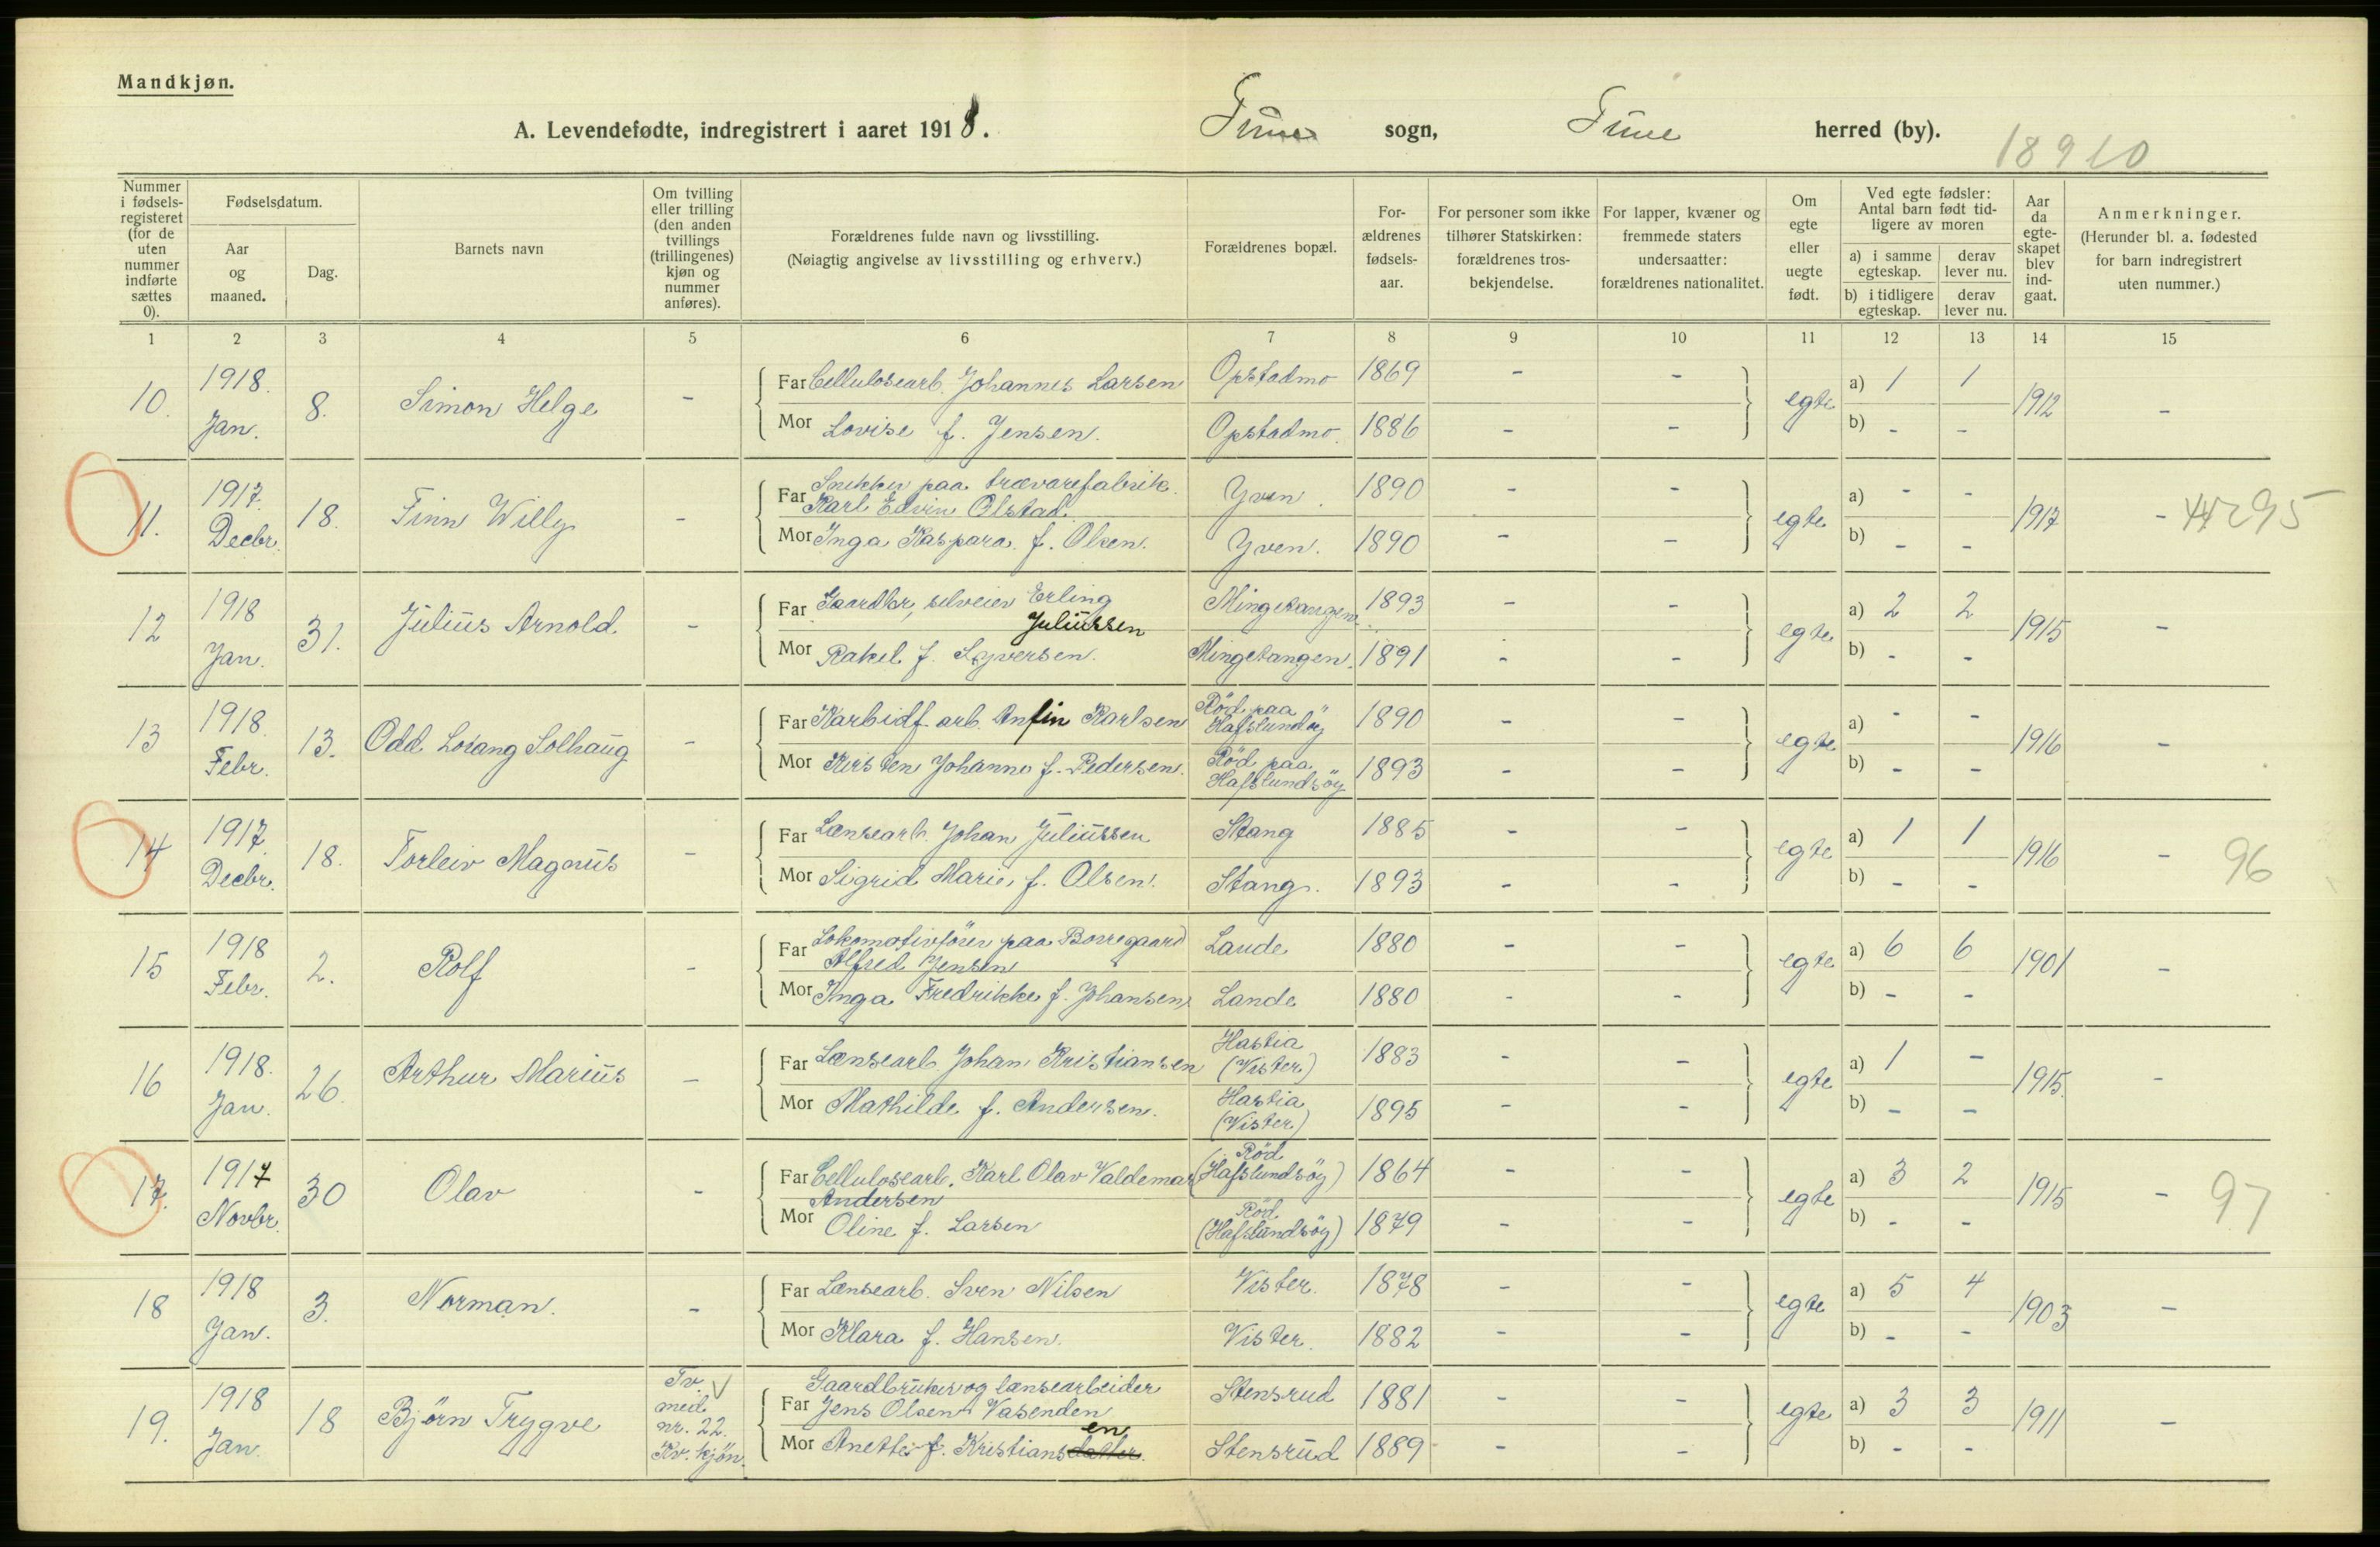 Mandkjøn.
A. Levendefødte, indregistrert i aaret 1918. Tune sogn, Tune herred (by).
18910
Nummer i fødsels-registeret (for de uten nummer indførte sættes 0).
Fødselsdatum.
Aar og maaned.
Dag.
Barnets navn
Om tvilling eller trilling (den anden tvillings (trillingenes) kjøn og nummer anføres).
Forældrenes fulde navn og livsstilling.
(Nøiagtig angivelse av livsstilling og erhverv.)
Forældrenes bopæl.
For-ældrenes fødsels-aar.
For personer som ikke tilhører Statskirken: forældrenes tros-bekjendelse.
For lapper, kvæner og fremmede staters undersaatter: forældrenes nationalitet.
Om egte eller uegte født.
Ved egte fødsler: Antal barn født tid-ligere av moren
a) i samme egteskap.
derav lever nu.
b) i tidligere egteskap.
derav lever nu.
Aar da egte-skapet blev ind-gaat.
Anmerkninger.
(Herunder bl. a. fødested for barn indregistrert uten nummer.)
1 2 3 4 5 6 7 8 9 10 11 12 13 14 15
10. 1918. Jan. 8. Simon Helge -
Far Cellulosearb. Johannes Larsen Opstadmo 1869 - - egte a) 1 1 1912 -
Mor Lovise f. Jensen. Opstadmo. 1886 - - b) - -
11. 1917. Decbr. 18. Finn Willy -
Far Snekker paa trævarefabrik.
Karl Edvin Olstad. Yven. 1890 - - egte a) - - 1917 - 295
Mor Inga Kaspara f. Olsen. Yven. 1890 - - b) - -
12 1918 Jan. 31. Julius Arnold. -
Far Gaardbr, selveier Erling
Juliussen Mingetangen. 1893 - - egte a) 2 2 1915 -
Mor Rakel f. Syversen. Mingetangen. 1891 - - b) - -
13 1918. Febr. 13. Odd Losang Solhaug -
Far Karbidf. arb. Anfin Karlsen Röd paa Hafslundöy 1890 - - egte a) - - 1916 -
Mor Kirsten Johanne f. Pedersen. Röd paa Hafslundsöy 1893 - - b) - -
14 1917. Decbr. 18. Torleiv Magnus -
Far Lænsearb. Johan Juliussen Stang 1885 - - egte a) 1 1 1916 - 96
Mor Sigrid Marie f. Olsen. Stang. 1893 - - b) - -
15 1918 Febr. 2. Rolf -
Far Lokomotivförer paa Borregaard
Alfred Jensen Lande 1880 - - egte a) 6 6 1901 -
Mor Inga Fredrikke f. Johansen Lande 1880 - - b) - -
16 1918. Jan. 26. Arthur Marius -
Far Lænsearb. Johan Kristiansen Hastia (Vister) 1883 - - egte a) 1 - 1915. -
Mor Mathilde f. Andersen. Hastia (Vister) 1895 - - b) - -
17. 1917 Novbr. 30 Olav -
Far Cellulosearb. Karl Olav Valdemar
Andersen Röd (Hafslundsöy) 1864 - - egte a) 3 2 1915 - 97
Mor Oline f. Larsen Röd (Hafslundsöy) 1879 - - b) - -
18 1918 Jan. 3. Norman. -
Far Lænsearb. Sven Nilsen Vister. 1878 - - egte a) 5 4 1903 -
Mor Klara f. Hansen. Vister. 1882 - - b) - -
19. 1918 Jan. 18 Björn Trygve Tv. med nr. 22. Kv. kjön.
Gaardbruker og lænsearbeider
Far Jens Olsen Vasenden Stensrud 1881 - - egte a) 3 3 1911 -
Mor Anette f. Kristiansdatter. en Stensrud 1889 - - b) - -